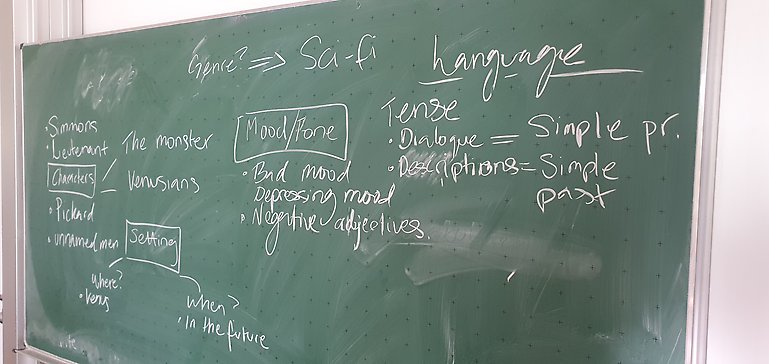 Genre? => Sci-fi
Language
• Simmons
• Lieutenant
Characters
The monster
Venusians
• Pickard
• unnamed men
Setting
where?
• Venus
when?
• In the future
Mood/Tone
• Bad mood
Depressing mood
• Negative adjectives.
Tense
• Dialogue = Simple pr.
• Descriptions = Simple
past